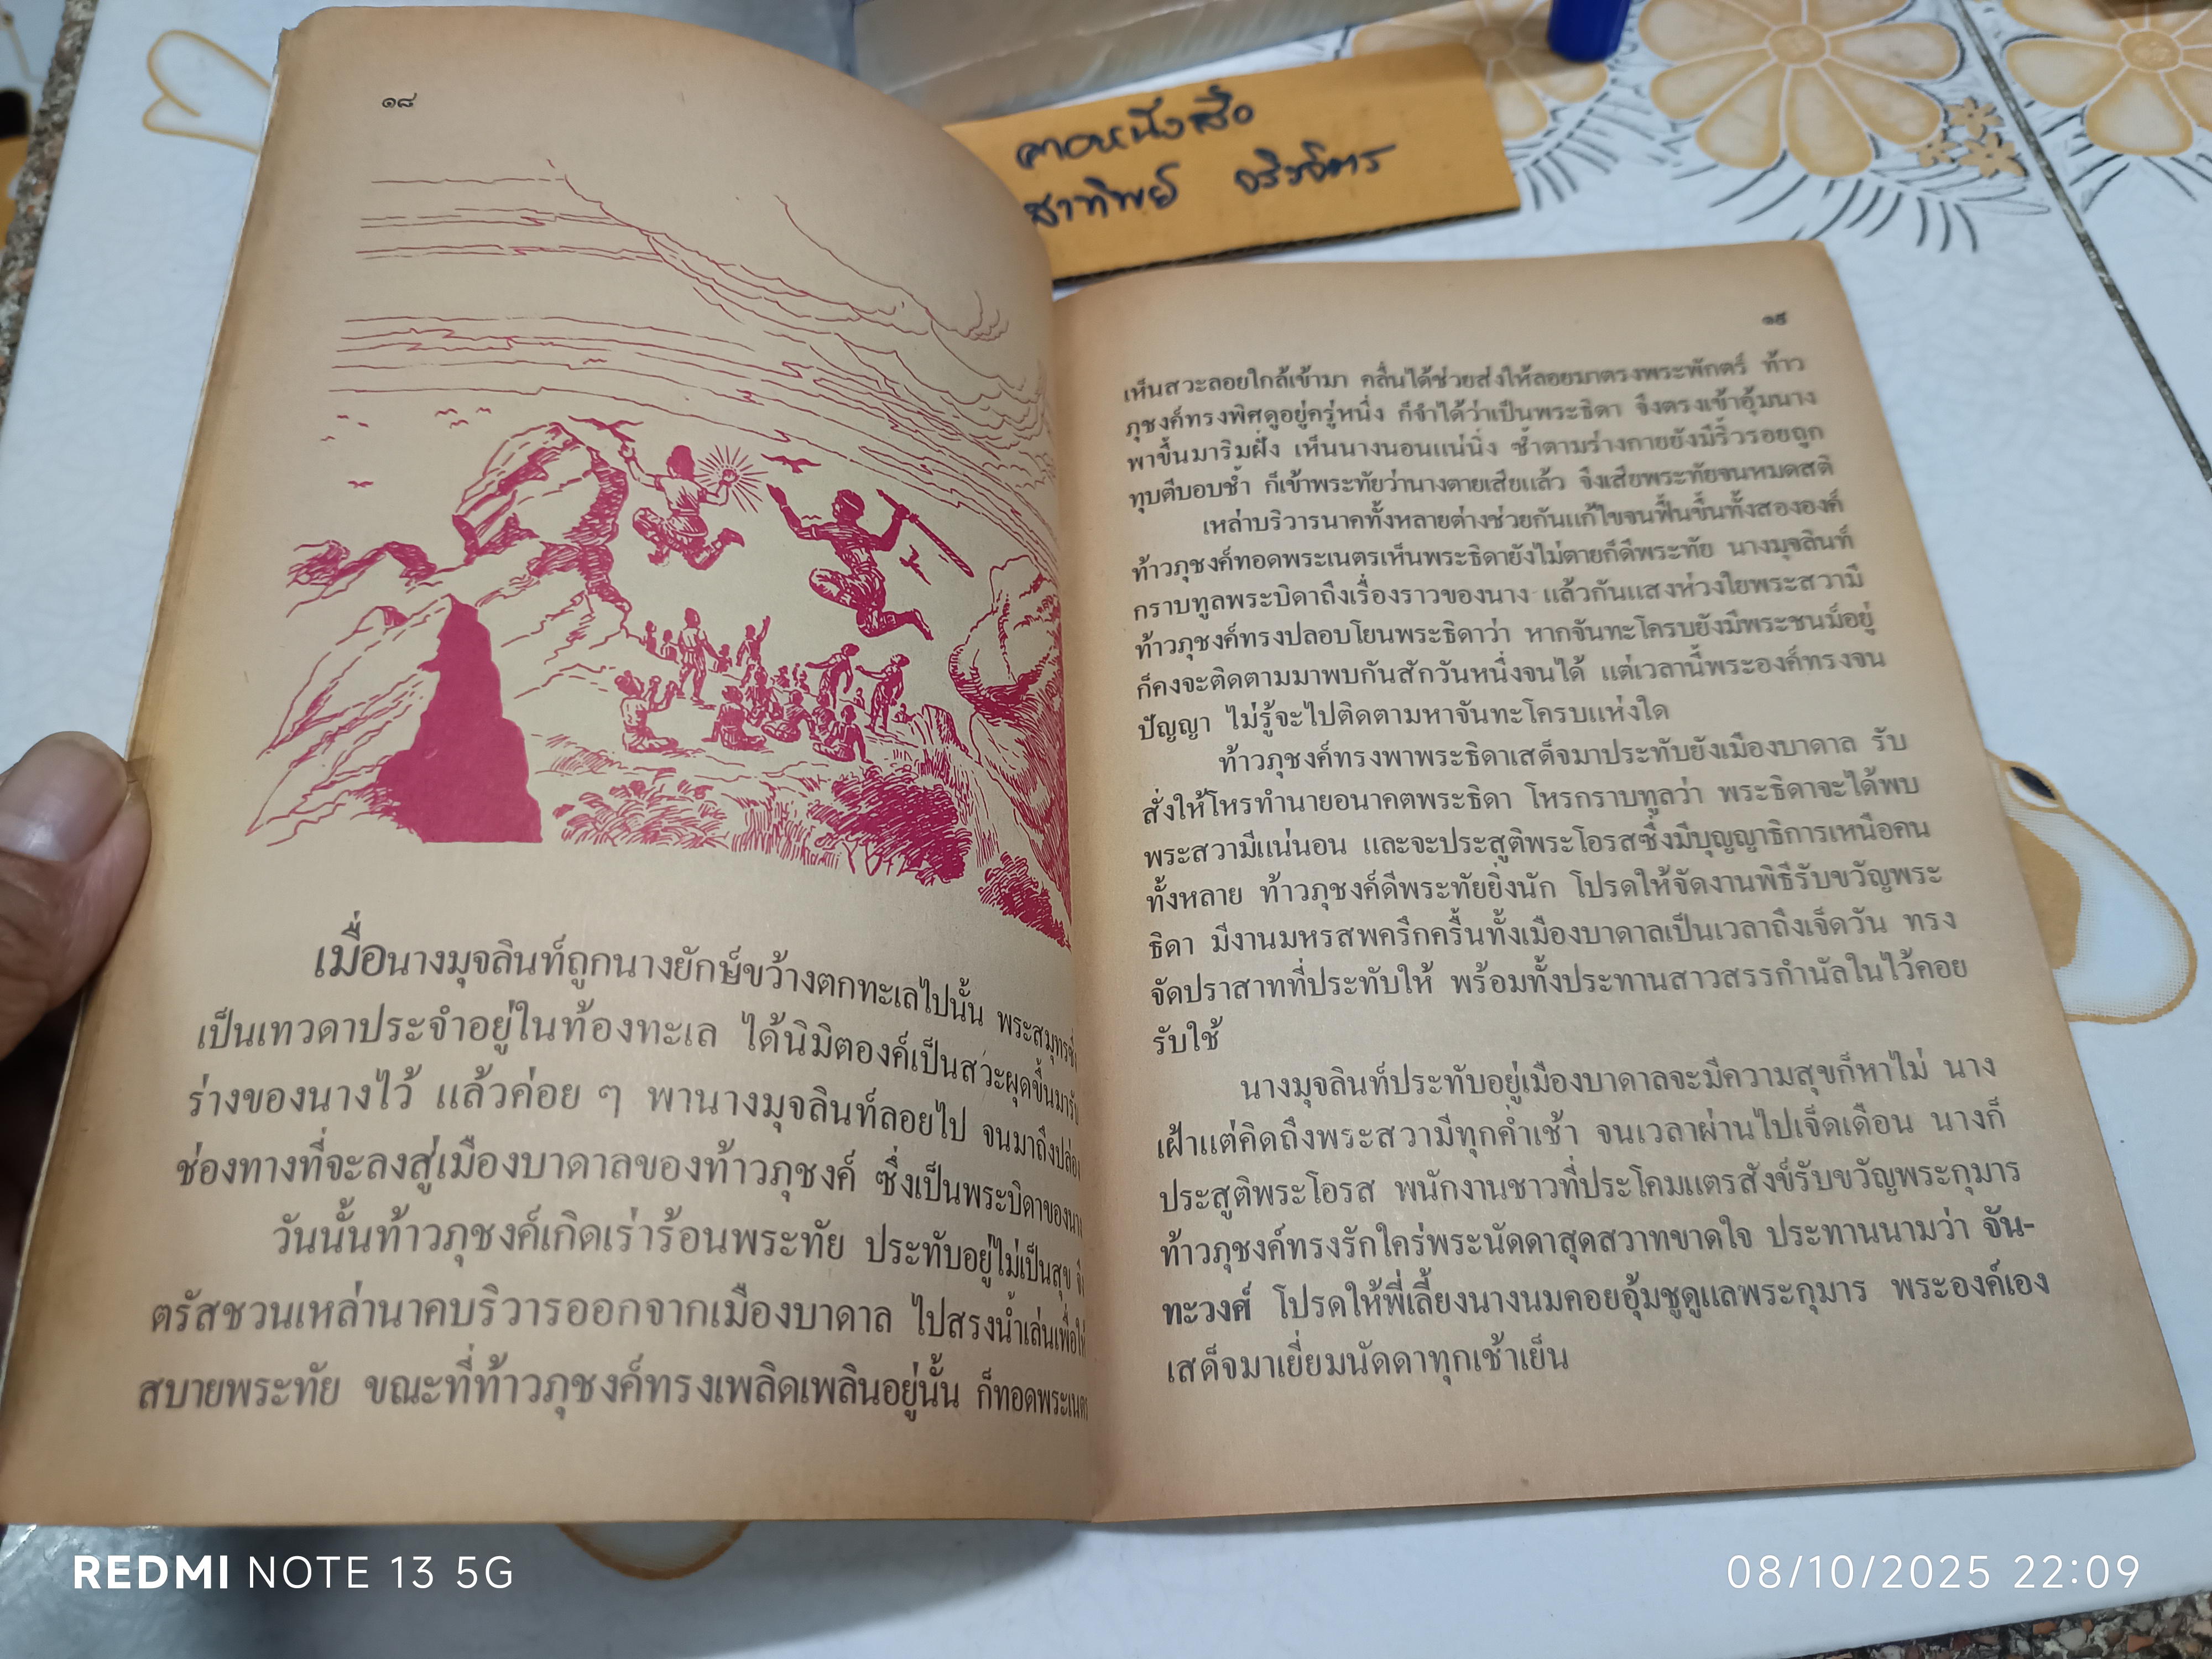 ๑๘
เมื่อนางมุจลินท์ถูกนางยักษ์ขว้างตกทะเลไปนั้น พระสมุทรซึ่ง
เป็นเทวดาประจำอยู่ในท้องทะเล ได้นิมิตองค์เป็นสวะผุดขึ้นมารับ
ร่างของนางไว้ แล้วค่อย ๆ พานางมุจลินท์ลอยไป จนมาถึงปล่อง
ช่องทางที่จะลงสู่เมืองบาดาลของท้าวภุชงค์ ซึ่งเป็นพระบิดาของนาง
วันนั้นท้าวภุชงค์เกิดเร่าร้อนพระทัย ประทับอยู่ไม่เป็นสุข
ตรัสชวนเหล่านาคบริวารออกจากเมืองบาดาล ไปสรงน้ำเล่นเพื่อให้
สบายพระทัย ขณะที่ท้าวภุชงค์ทรงเพลิดเพลินอยู่นั้น ก็ทอดพระเนตร
๑๙
เห็นสวะลอยใกล้เข้ามา คลื่นได้ช่วยส่งให้ลอยมาตรงพระพักตร์ ท้าว
ภุชงค์ทรงพิศดูอยู่ครู่หนึ่ง ก็จำได้ว่าเป็นพระธิดา จึงตรงเข้าอุ้มนาง
พาขึ้นมาริมฝั่ง เห็นนางนอนแน่นิ่ง ซ้ำตามร่างกายยังมีริ้วรอยถูก
ทุบตีบอบช้ำ ก็เข้าพระทัยว่านางตายเสียแล้ว จึงเสียพระทัยจนหมดสติ
เหล่าบริวารนาคทั้งหลายต่างช่วยกันแก้ไขจนฟื้นขึ้นทั้งสององค์
ท้าวภุชงค์ทอดพระเนตรเห็นพระธิดายังไม่ตายก็ดีพระทัย นางมุจลินท์
กราบทูลพระบิดาถึงเรื่องราวของนาง แล้วกันแสงห่วงใยพระสวามี
ท้าวภุชงค์ทรงปลอบโยนพระธิดาว่า หากจันทะโครบยังมีพระชนม์อยู่
ก็คงจะติดตามมาพบกันสักวันหนึ่งจนได้ แต่เวลานี้พระองค์ทรงจน
ปัญญา ไม่รู้จะไปติดตามหาจันทะโครบแห่งใด
ท้าวภุชงค์ทรงพาพระธิดาเสด็จมาประทับยังเมืองบาดาล รับ
สั่งให้โหรทำนายอนาคตพระธิดา โหรกราบทูลว่า พระธิดาจะได้พบ
พระสวามีแน่นอน และจะประสูติพระโอรสซึ่งมีบุญญาธิการเหนือคน
ทั้งหลาย ท้าวภุชงค์ดีพระทัยยิ่งนัก โปรดให้จัดงานพิธีรับขวัญพระ
ธิดา มีงานมหรสพครึกครื้นทั้งเมืองบาดาลเป็นเวลาถึงเจ็ดวัน ทรง
จัดปราสาทที่ประทับให้ พร้อมทั้งประทานสาวสรรกำนัลในไว้คอย
รับใช้
นางมุจลินท์ประทับอยู่เมืองบาดาลจะมีความสุขก็หาไม่ นาง
เฝ้าแต่คิดถึงพระสวามีทุกค่ำเช้า จนเวลาผ่านไปเจ็ดเดือน นางก็
ประสูติพระโอรส พนักงานชาวที่ประโคมแตรสังข์รับขวัญพระกุมาร
ท้าวภุชงค์ทรงรักใคร่พระนัดดาสุดสวาทขาดใจ ประทานนามว่า จัน-
ทะวงศ์ โปรดให้พี่เลี้ยงนางนมคอยอุ้มชูดูแลพระกุมาร พระองค์เอง
เสด็จมาเยี่ยมนัดดาทุกเช้าเย็น
หนังสือ
สาทิพย์
REDMI NOTE 13 5G
08/10/2025 22:09